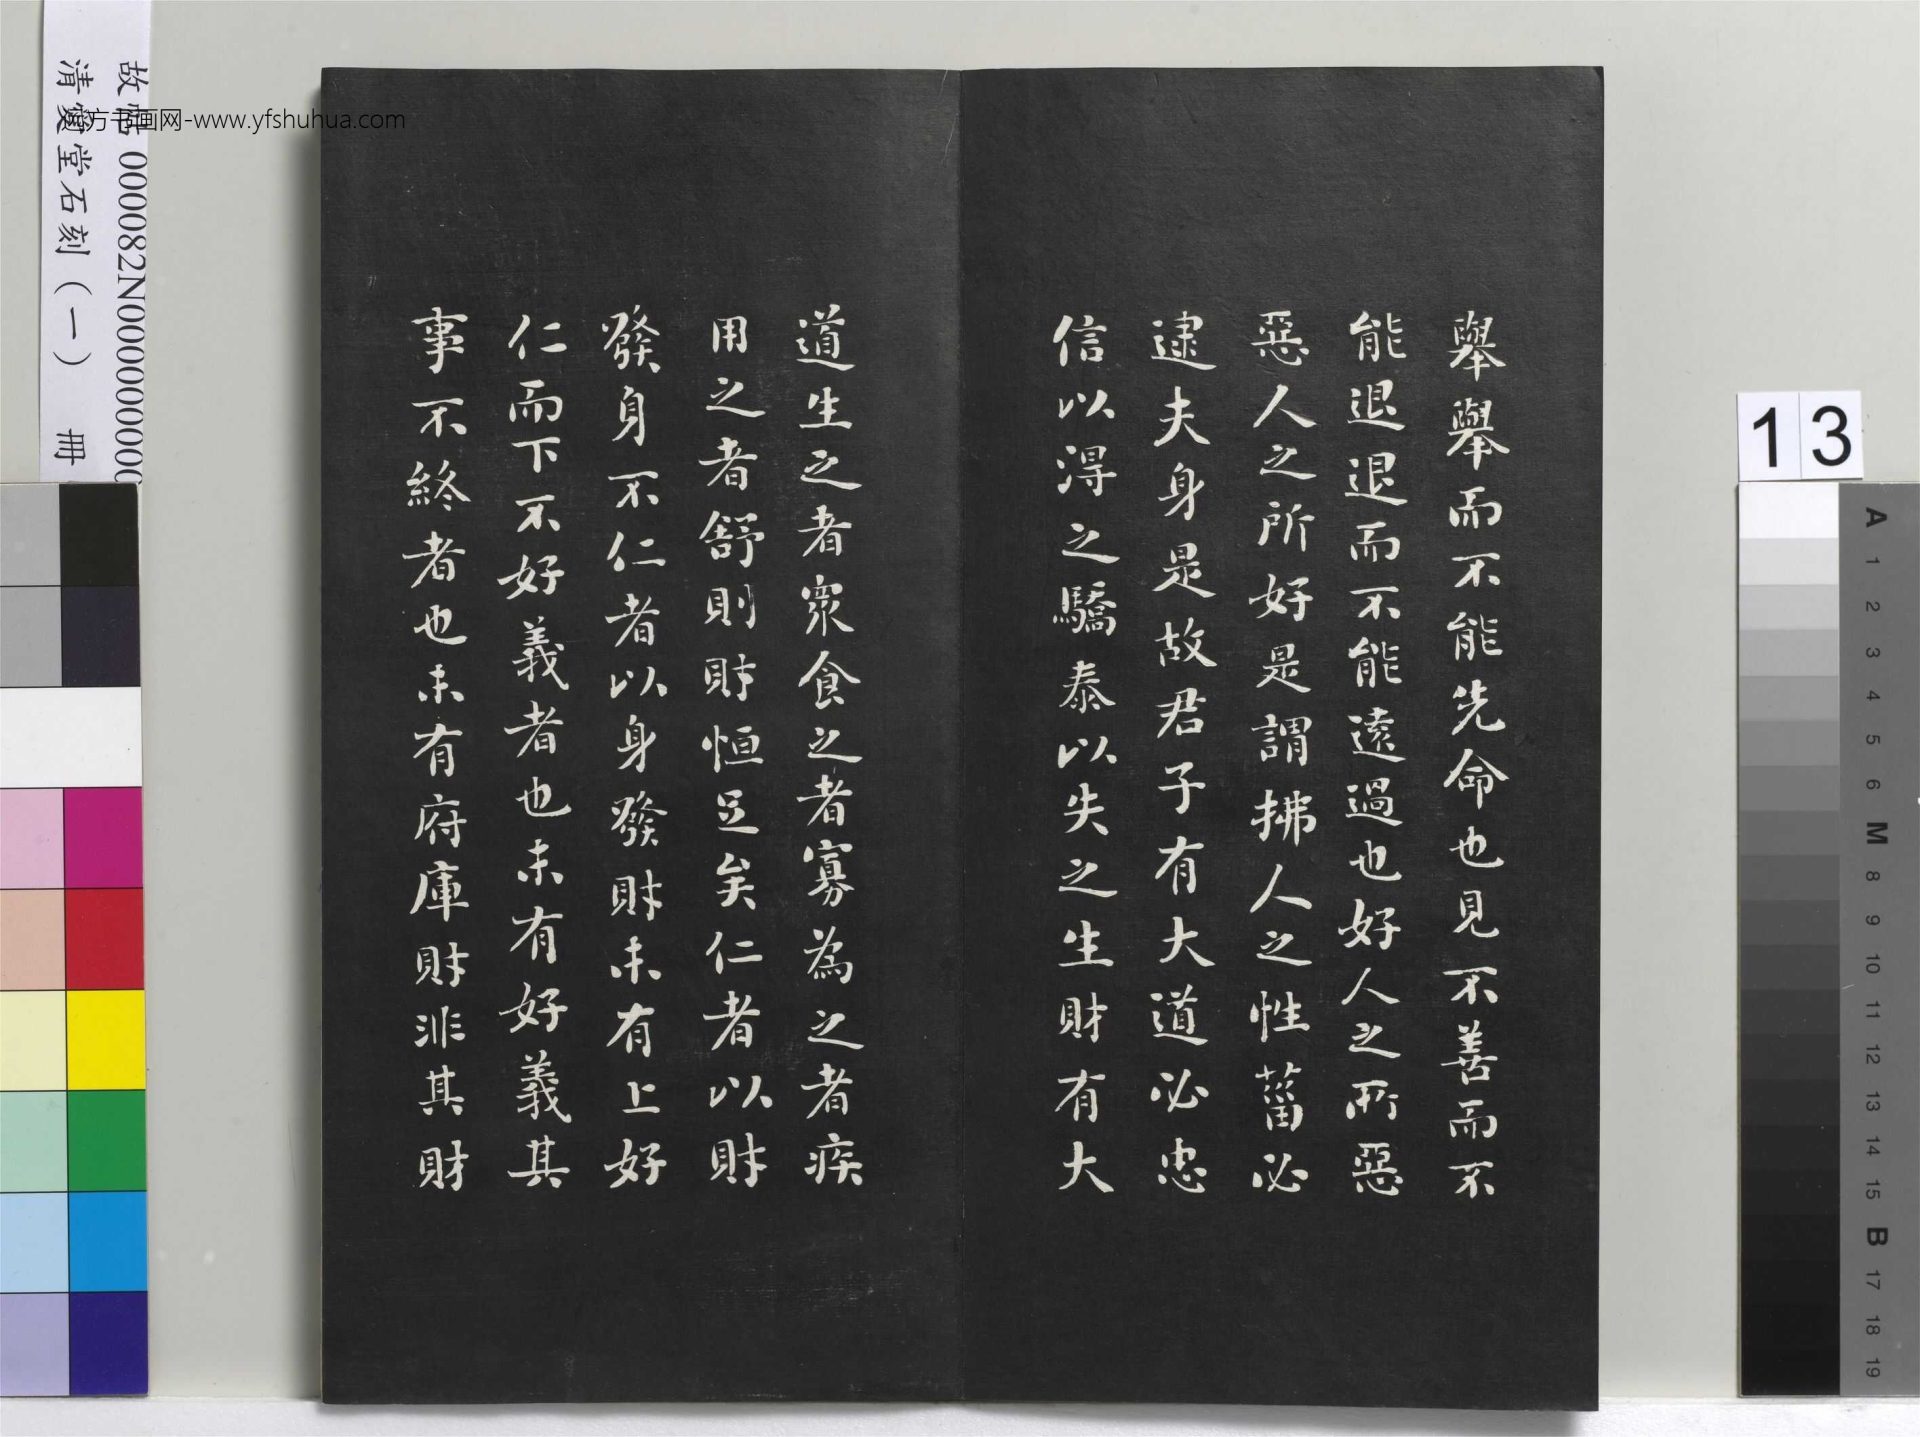 舉舉而不能先命也見不善而不
能退退而不能遠過也好人之所惡
惡人之所好是謂拂人之性菑必
逮夫身是故君子有大道必忠
信以得之驕泰以失之生財有大
道生之者衆食之者寡為之者疾
用之者舒則財恒足矣仁者以財
發身不仁者以身發財未有上好
仁而下不好義者也未有好義其
事不終者也未有府庫財非其財
故 000082N000000000
清愛堂石刻（一） 冊
方书画网-www.yfshuhua.com
13
A 1 2 3 4 5 6 M 8 9 10 11 12 13 14 15 B 17 18 19